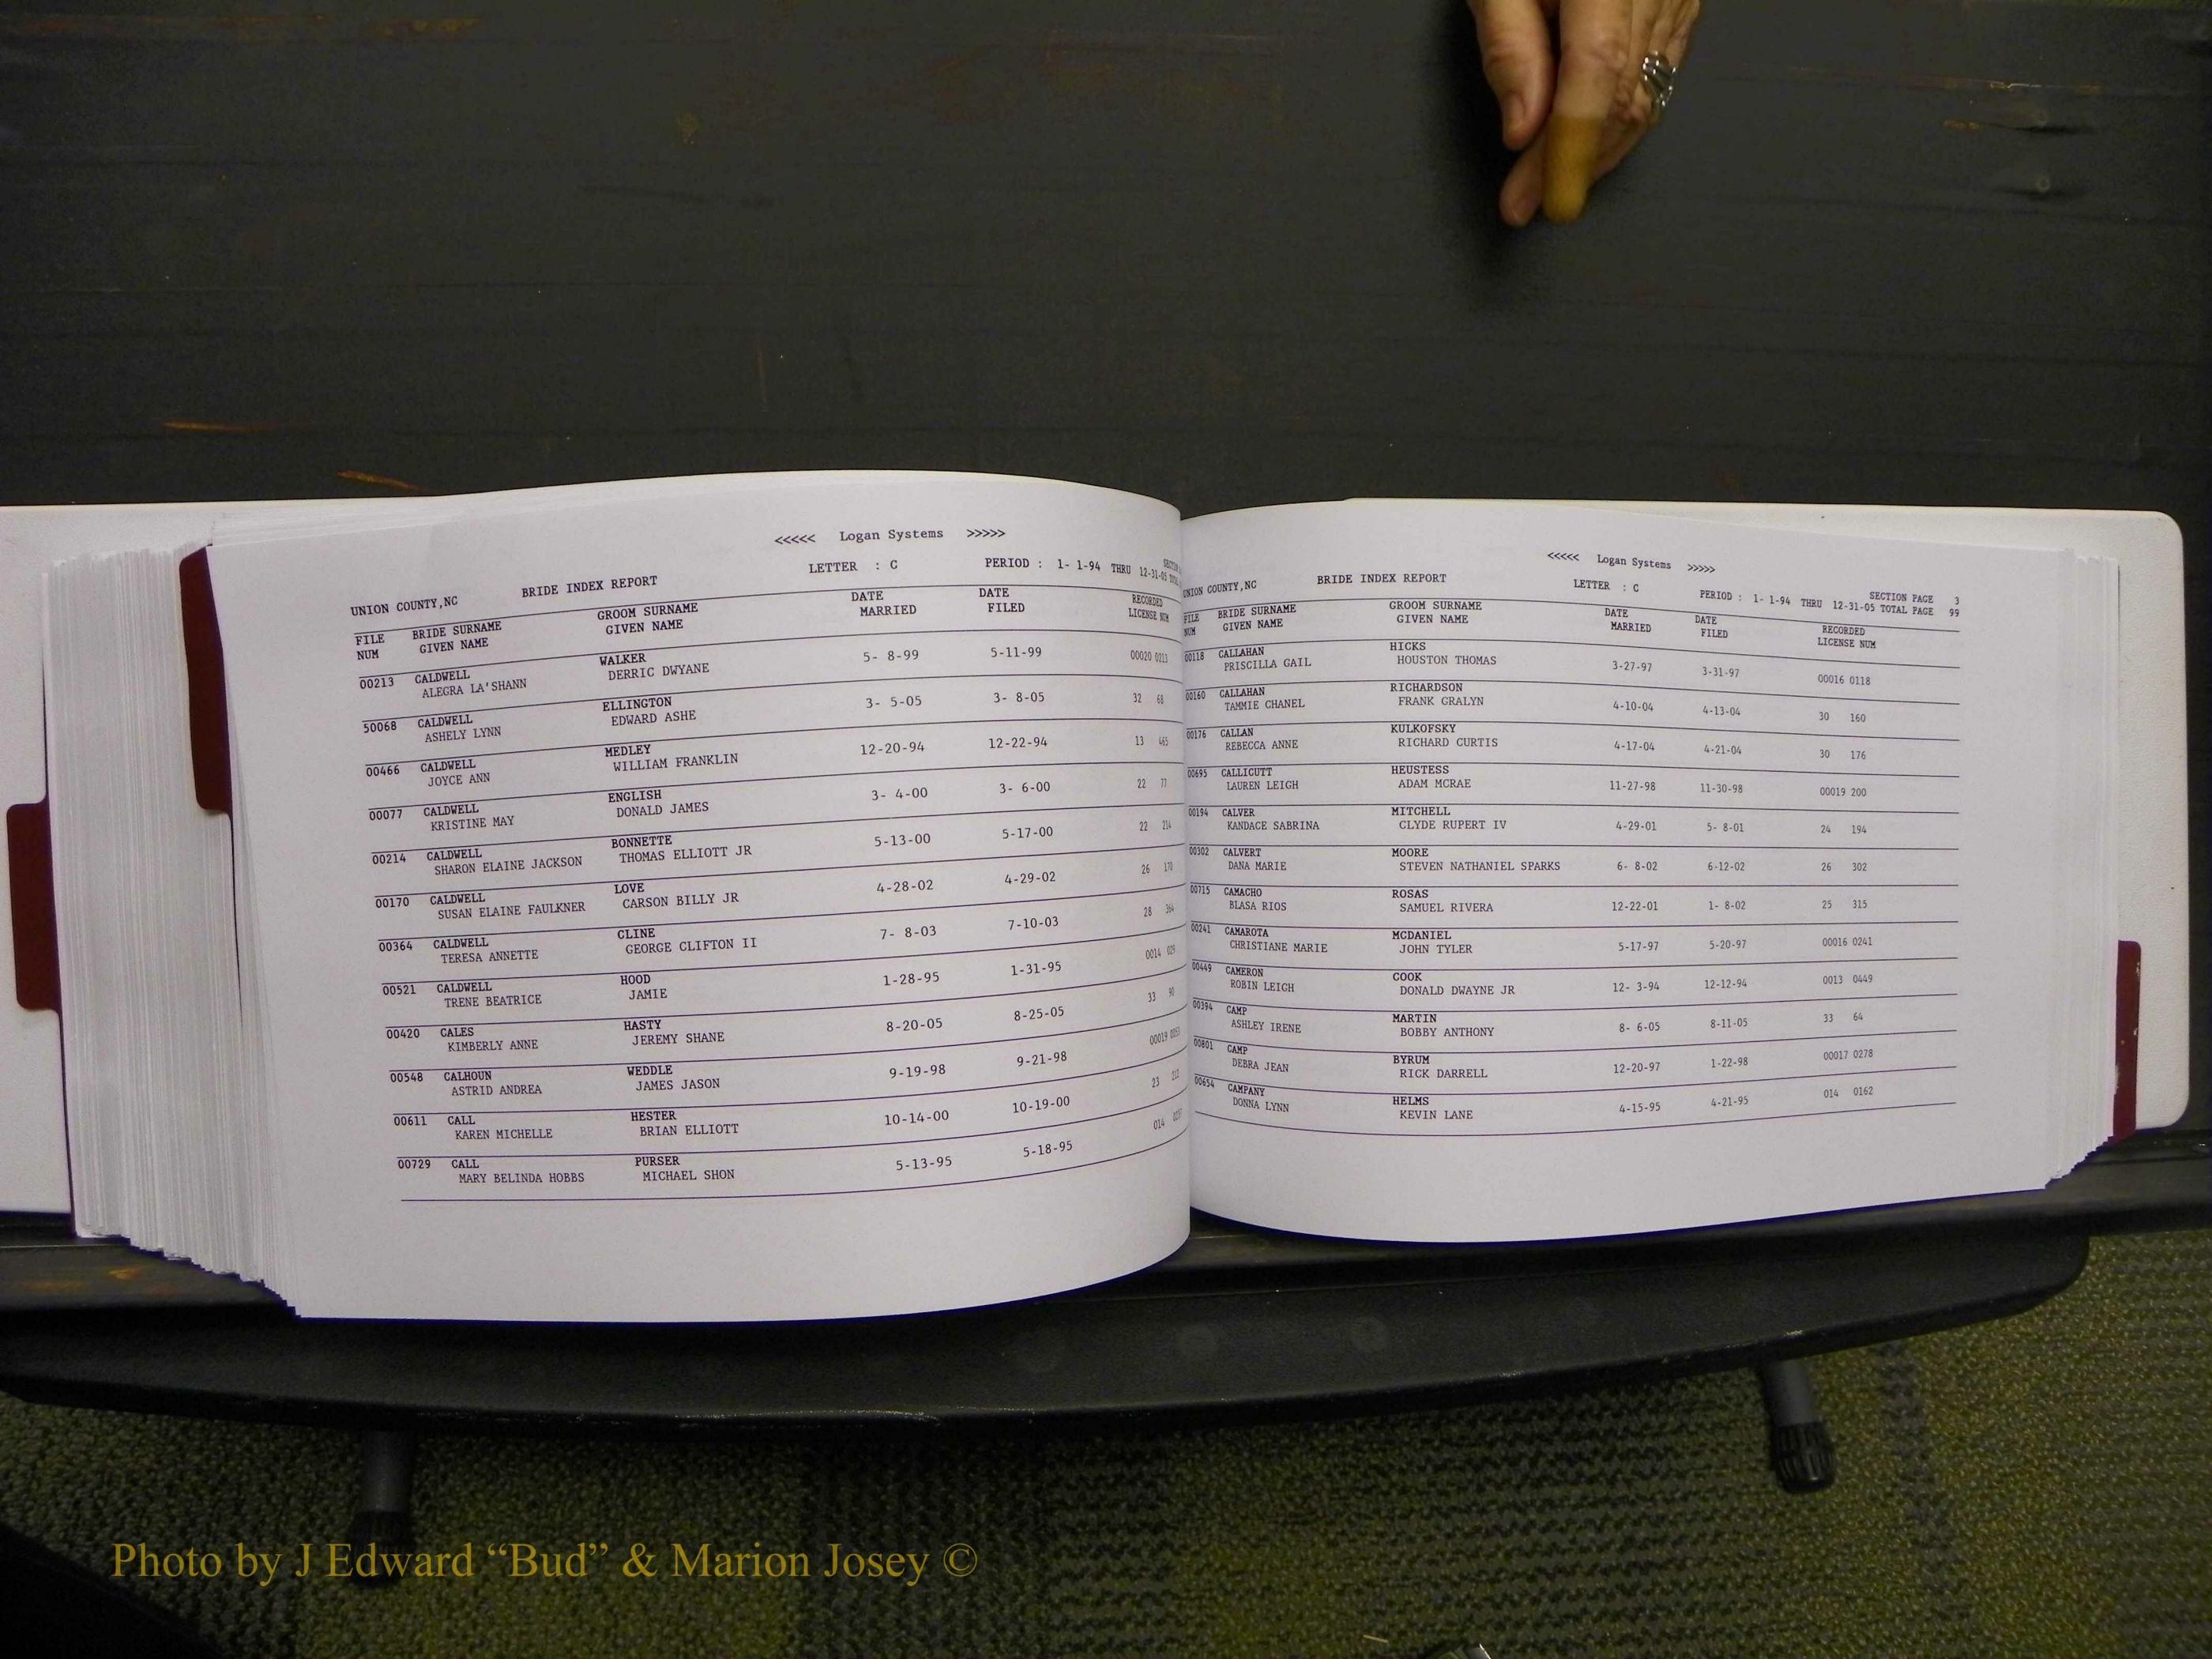 <<<<< Logan Systems >>>>>
UNION COUNTY,NC BRIDE INDEX REPORT LETTER : C PERIOD : 1- 1-94 THRU 12-31-05
FILE BRIDE SURNAME GROOM SURNAME DATE DATE RECORDED
NUM GIVEN NAME GIVEN NAME MARRIED FILED LICENSE NUM
00213 CALDWELL WALKER 5- 8-99 5-11-99 00020 0213
ALEGRA LA'SHANN DERRIC DWYANE
50068 CALDWELL ELLINGTON 3- 5-05 3- 8-05 32 68
ASHELY LYNN EDWARD ASHE
00466 CALDWELL MEDLEY 12-20-94 12-22-94 13
JOYCE ANN WILLIAM FRANKLIN
00077 CALDWELL ENGLISH 3- 4-00 3- 6-00 22 77
KRISTINE MAY DONALD JAMES
00214 CALDWELL BONNETTE 5-13-00 5-17-00 22 214
SHARON ELAINE JACKSON THOMAS ELLIOTT JR
00170 CALDWELL LOVE 4-28-02 4-29-02 26 170
SUSAN ELAINE FAULKNER CARSON BILLY JR
00364 CALDWELL CLINE 7- 8-03 7-10-03 28 364
TERESA ANNETTE GEORGE CLIFTON II
00521 CALDWELL HOOD 1-28-95 1-31-95 0014
TRENE BEATRICE JAMIE
00420 CALES HASTY 8-20-05 8-25-05 33 90
KIMBERLY ANNE JEREMY SHANE
00548 CALHOUN WEDDLE 9-19-98 9-21-98 00019
ASTRID ANDREA JAMES JASON
00611 CALL HESTER 10-14-00 10-19-00 23
KAREN MICHELLE BRIAN ELLIOTT
00729 CALL PURSER 5-13-95 5-18-95 014
MARY BELINDA HOBBS MICHAEL SHON
<<<<< Logan Systems >>>>>
UNION COUNTY,NC BRIDE INDEX REPORT LETTER : C SECTION PAGE 3
PERIOD : 1- 1-94 THRU 12-31-05 TOTAL PAGE 99
FILE BRIDE SURNAME GROOM SURNAME DATE DATE RECORDED
NUM GIVEN NAME GIVEN NAME MARRIED FILED LICENSE NUM
00118 CALLAHAN HICKS 3-27-97 3-31-97 00016 0118
PRISCILLA GAIL HOUSTON THOMAS
00160 CALLAHAN RICHARDSON 4-10-04 4-13-04 30 160
TAMMIE CHANEL FRANK GRALYN
00176 CALLAN KULKOFSKY 4-17-04 4-21-04 30 176
REBECCA ANNE RICHARD CURTIS
00695 CALLICUTT HEUSTESS 11-27-98 11-30-98 00019 200
LAUREN LEIGH ADAM MCRAE
00194 CALVER MITCHELL 4-29-01 5- 8-01 24 194
KANDACE SABRINA CLYDE RUPERT IV
00302 CALVERT MOORE 6- 8-02 6-12-02 26 302
DANA MARIE STEVEN NATHANIEL SPARKS
00715 CAMACHO ROSAS 12-22-01 1- 8-02 25 315
BLASA RIOS SAMUEL RIVERA
00241 CAMAROTA MCDANIEL 5-17-97 5-20-97 00016 0241
CHRISTIANE MARIE JOHN TYLER
00449 CAMERON COOK 12- 3-94 12-12-94 0013 0449
ROBIN LEIGH DONALD DWAYNE JR
00394 CAMP MARTIN 8- 6-05 8-11-05 33 64
ASHLEY IRENE BOBBY ANTHONY
00801 CAMP BYRUM 12-20-97 1-22-98 00017 0278
DEBRA JEAN RICK DARRELL
00654 CAMPANY HELMS 4-15-95 4-21-95 014 0162
DONNA LYNN KEVIN LANE
Photo by J Edward “Bud” & Marion Josey ©